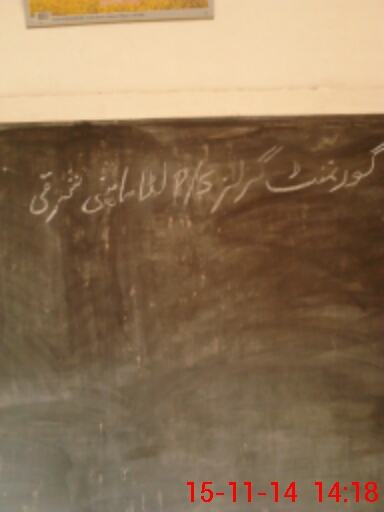 گورنمنٹ گرلز P/S شرقی
15-11-14 14:18